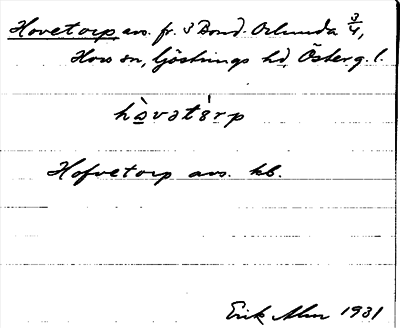 Hovetorp avs. fr. 3 Bond. Orlunda 3/4,
Hovs sn, Göstrings hd, Österg. l.
hòvatórp
Hofvetorp avs. kb.
Erik Alm 1931